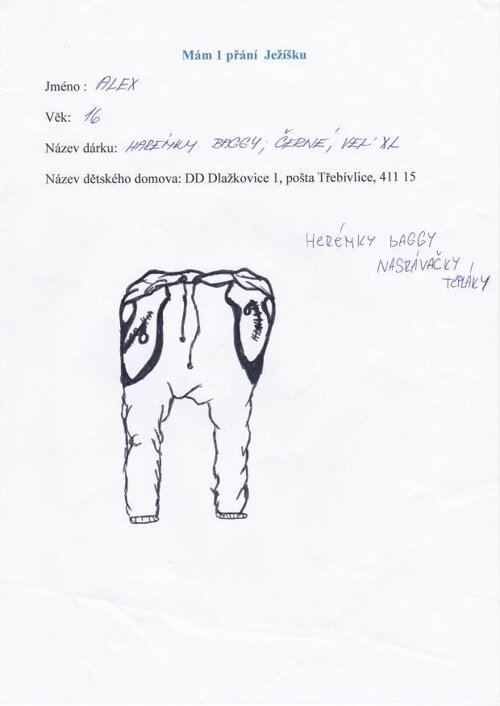 Mám 1 přání Ježíšku
Jméno : ALEX
Věk: 16
Název dárku: HARÉMKY BAGGY, ČERNÉ, VEL: XL
Název dětského domova: DD Dlažkovice 1, pošta Třebívlice, 411 15
HERÉMKY BAGGY
NASRÁVAČKY
TEPLÁKY